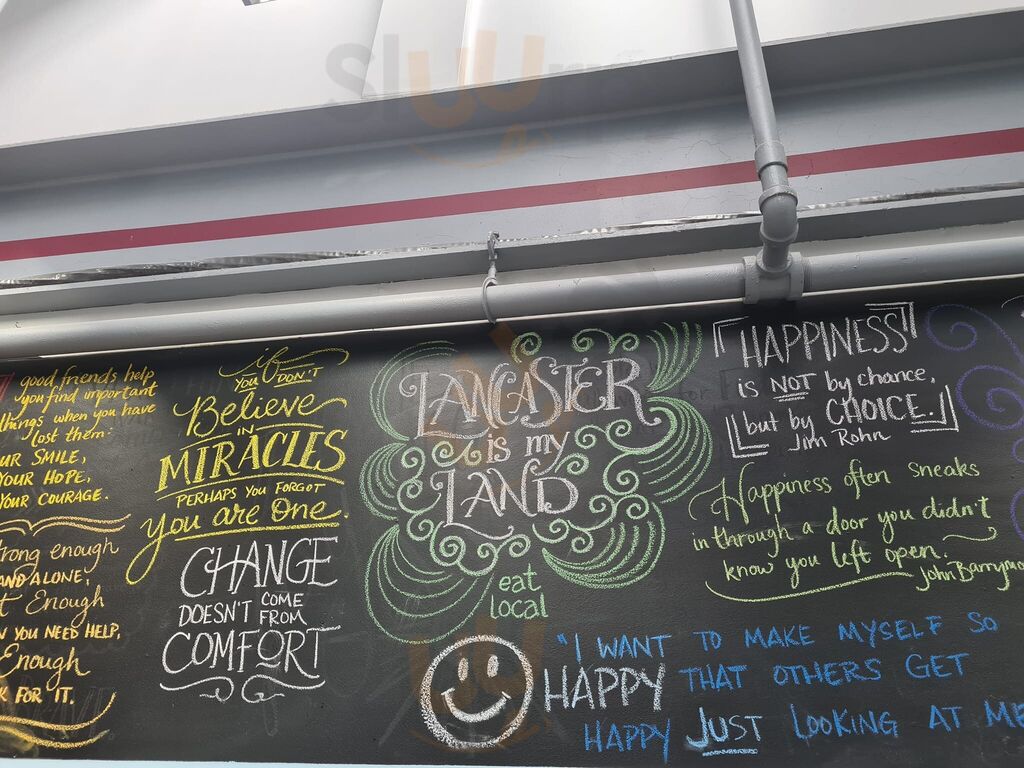 good friends help
you find important
things when you have
lost them:
UR SMILE,
YOUR HOPE,
YOUR COURAGE.
trong enough
AND ALONE,
t Enough
N YOU NEED HELP,
Enough
K FOR IT.
if
YOU DON'T
Believe
IN
MIRACLES
PERHAPS YOU FORGOT
you are one.
CHANGE
DOESN'T COME
FROM
COMFORT
LANCASTER
is my
LAND
eat
local
HAPPINESS
is NOT by chance,
but by CHOICE.
Jim Rohn
Happiness often sneaks
in through a door you didn't
know you left open.
John Barrymo
"I WANT TO MAKE MYSELF SO
HAPPY THAT OTHERS GET
HAPPY JUST LOOKING AT ME